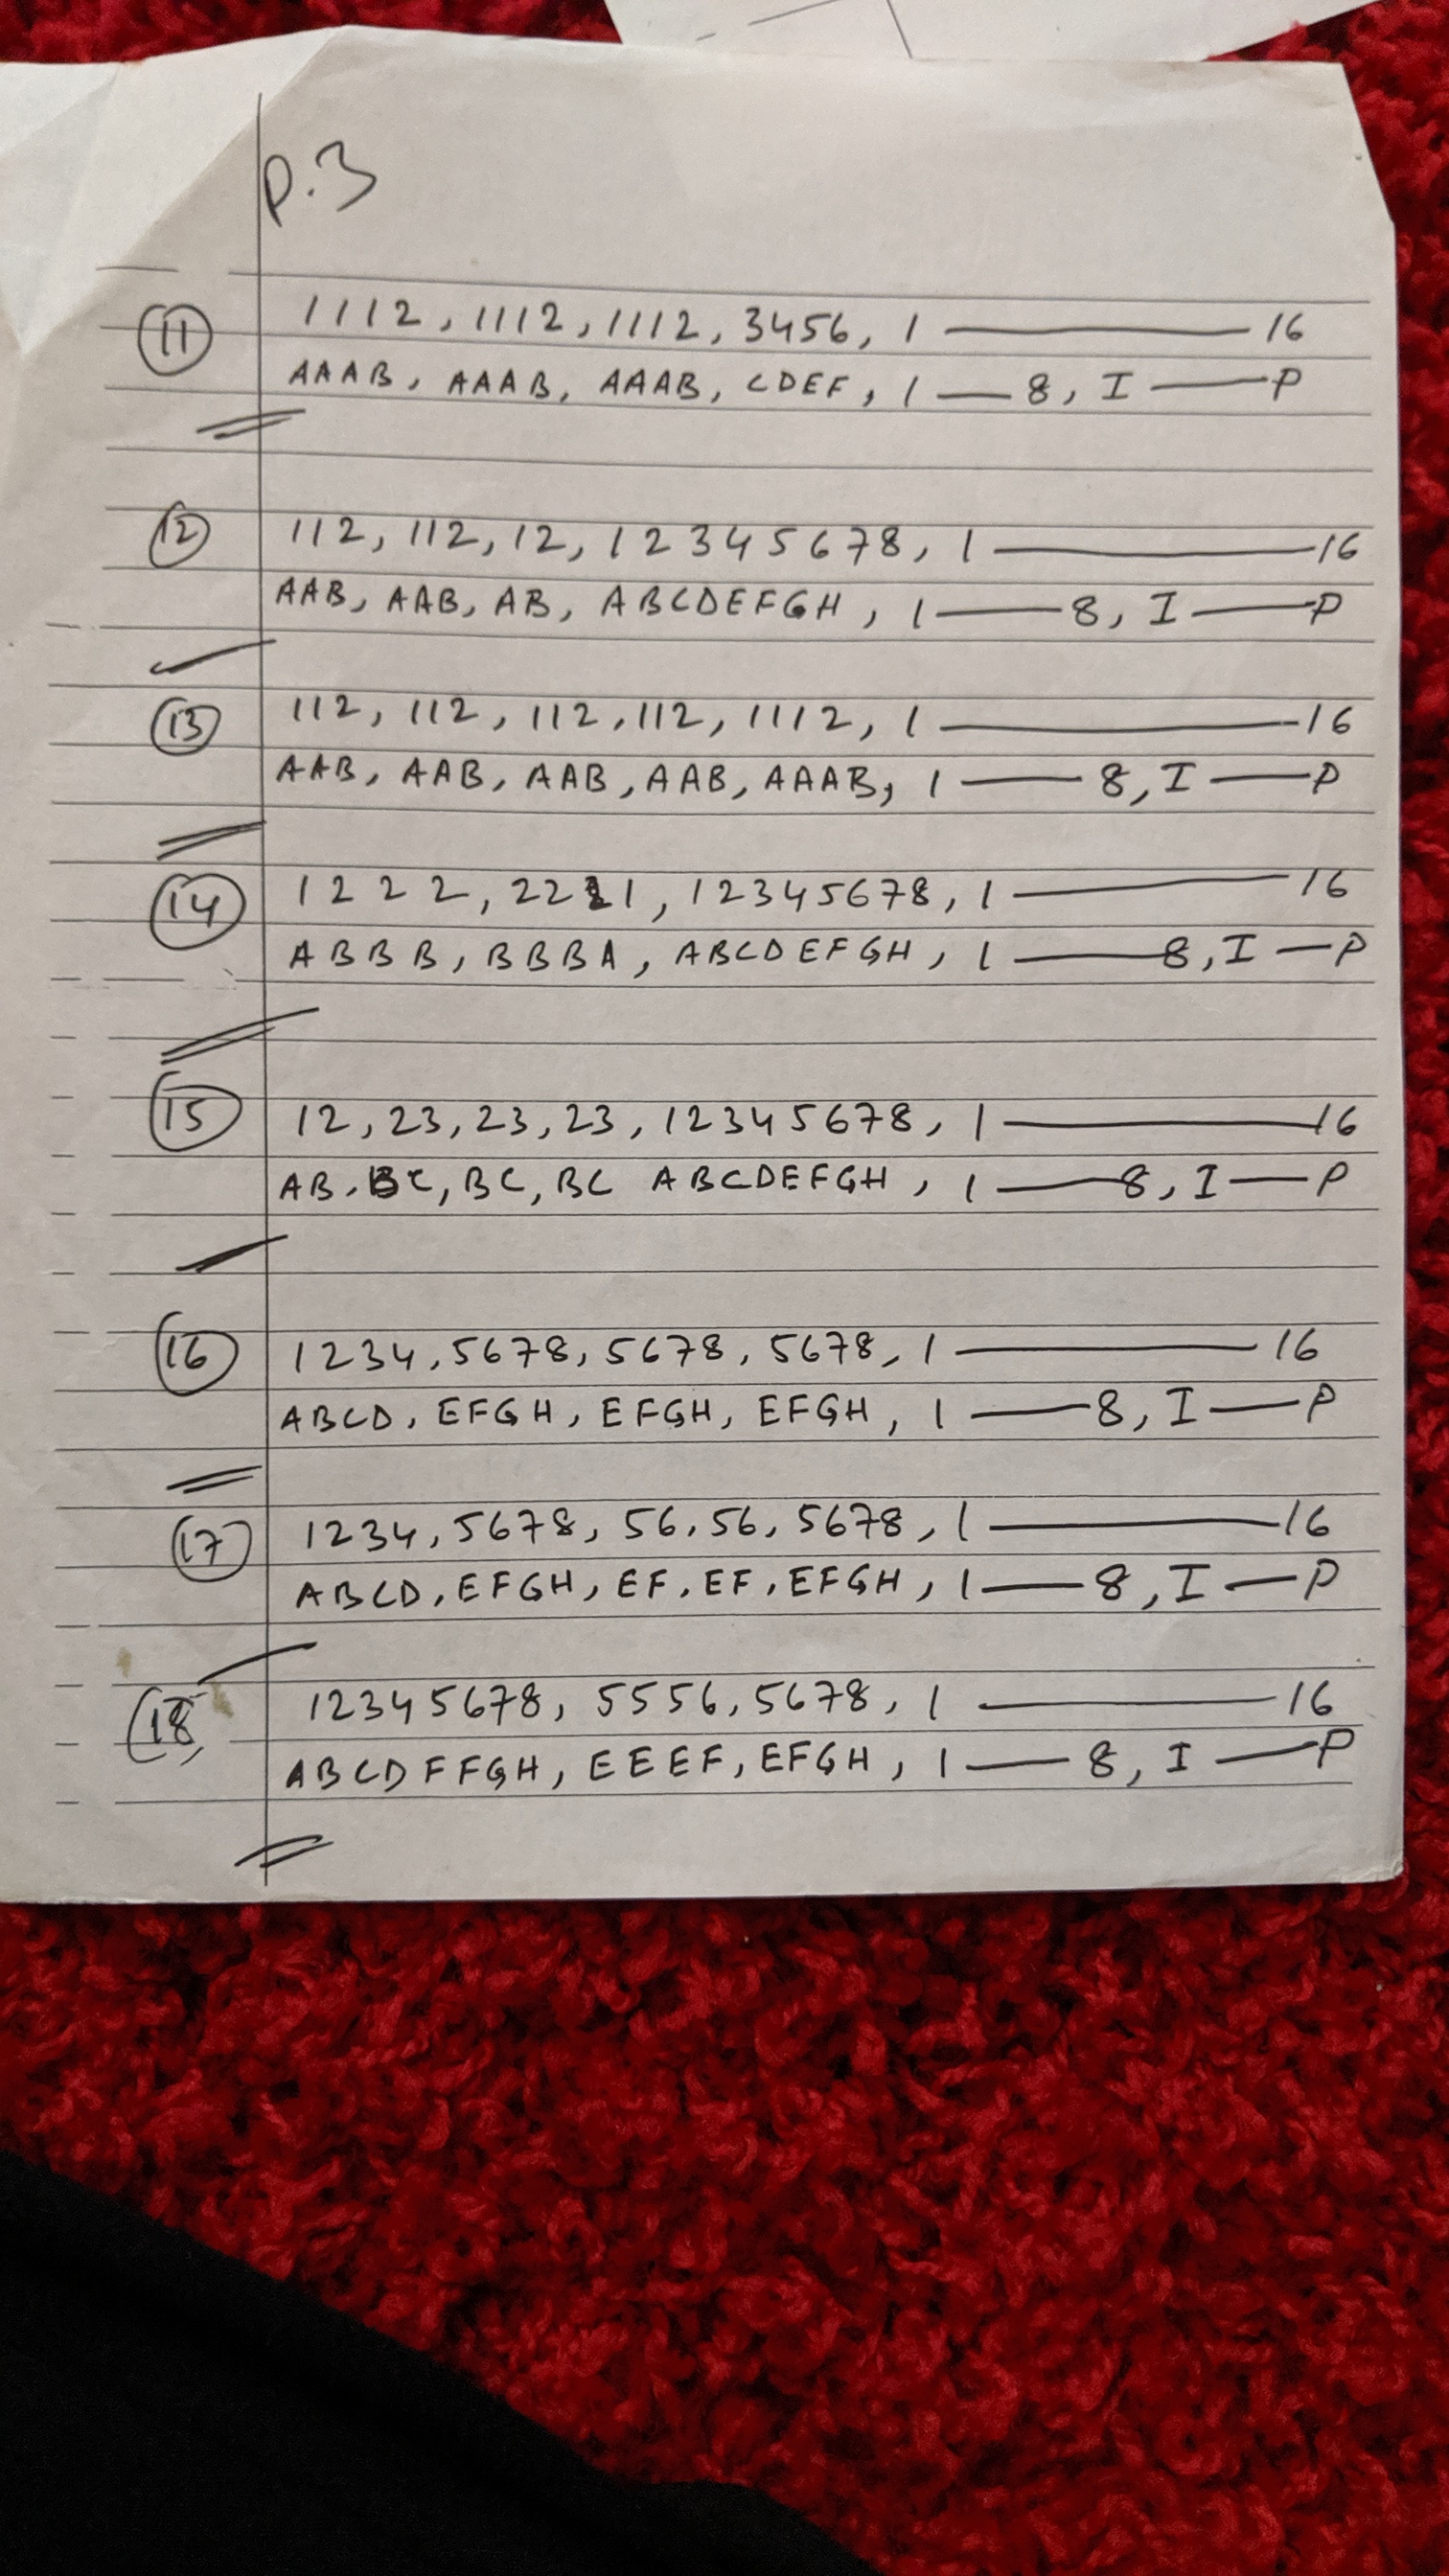 P.3
11 1112, 1112, 1112, 3456, 1 —— 16
AAAB, AAAB, AAAB, CDEF, 1 — 8, I — P
12 112, 112, 12, 12345678, 1 —— 16
AAB, AAB, AB, ABCDEFGH, 1 — 8, I — P
13 112, 112, 112, 112, 1112, 1 —— 16
AAB, AAB, AAB, AAB, AAAB, 1 — 8, I — P
14 1222, 2221, 12345678, 1 —— 16
ABBB, BBBA, ABCDEFGH, 1 — 8, I — P
15 12, 23, 23, 23, 12345678, 1 —— 16
AB, BC, BC, BC ABCDEFGH, 1 — 8, I — P
16 1234, 5678, 5678, 5678, 1 —— 16
ABCD, EFGH, EFGH, EFGH, 1 — 8, I — P
17 1234, 5678, 56, 56, 5678, 1 —— 16
ABCD, EFGH, EF, EF, EFGH, 1 — 8, I — P
18 12345678, 5556, 5678, 1 —— 16
ABCDFFGH, EEEF, EFGH, 1 — 8, I — P